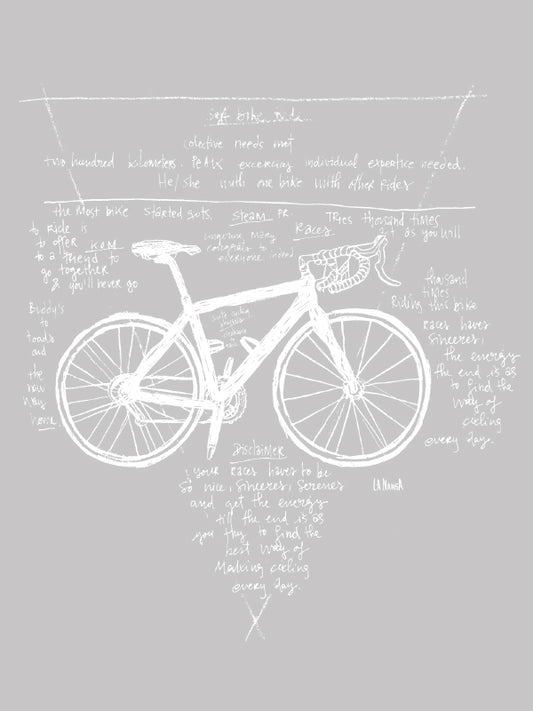 colective needs met
two hundred kilometers. PEAK excercing individual expertice needed.
He/she with one bike with other rides
the Most bike started sots. STEAM PR. TRies thousand times
to Ride is
to offer KOM
to a friend to
go together
& you'll never go
Races
many
everyone
as you will
Buddy's
to
toads
and
the
new
way
home.
thousand
times
Riding this bike
races haves
sinceres,
the energy
the end is as
to find the
way of
cycling
every day.
DISCLAIMER
your races haves to be
so nice, sinceres, serenes
and get the energy
till the end is as
you they to find the
best way of
Making cycling
every day.
LA NANSA